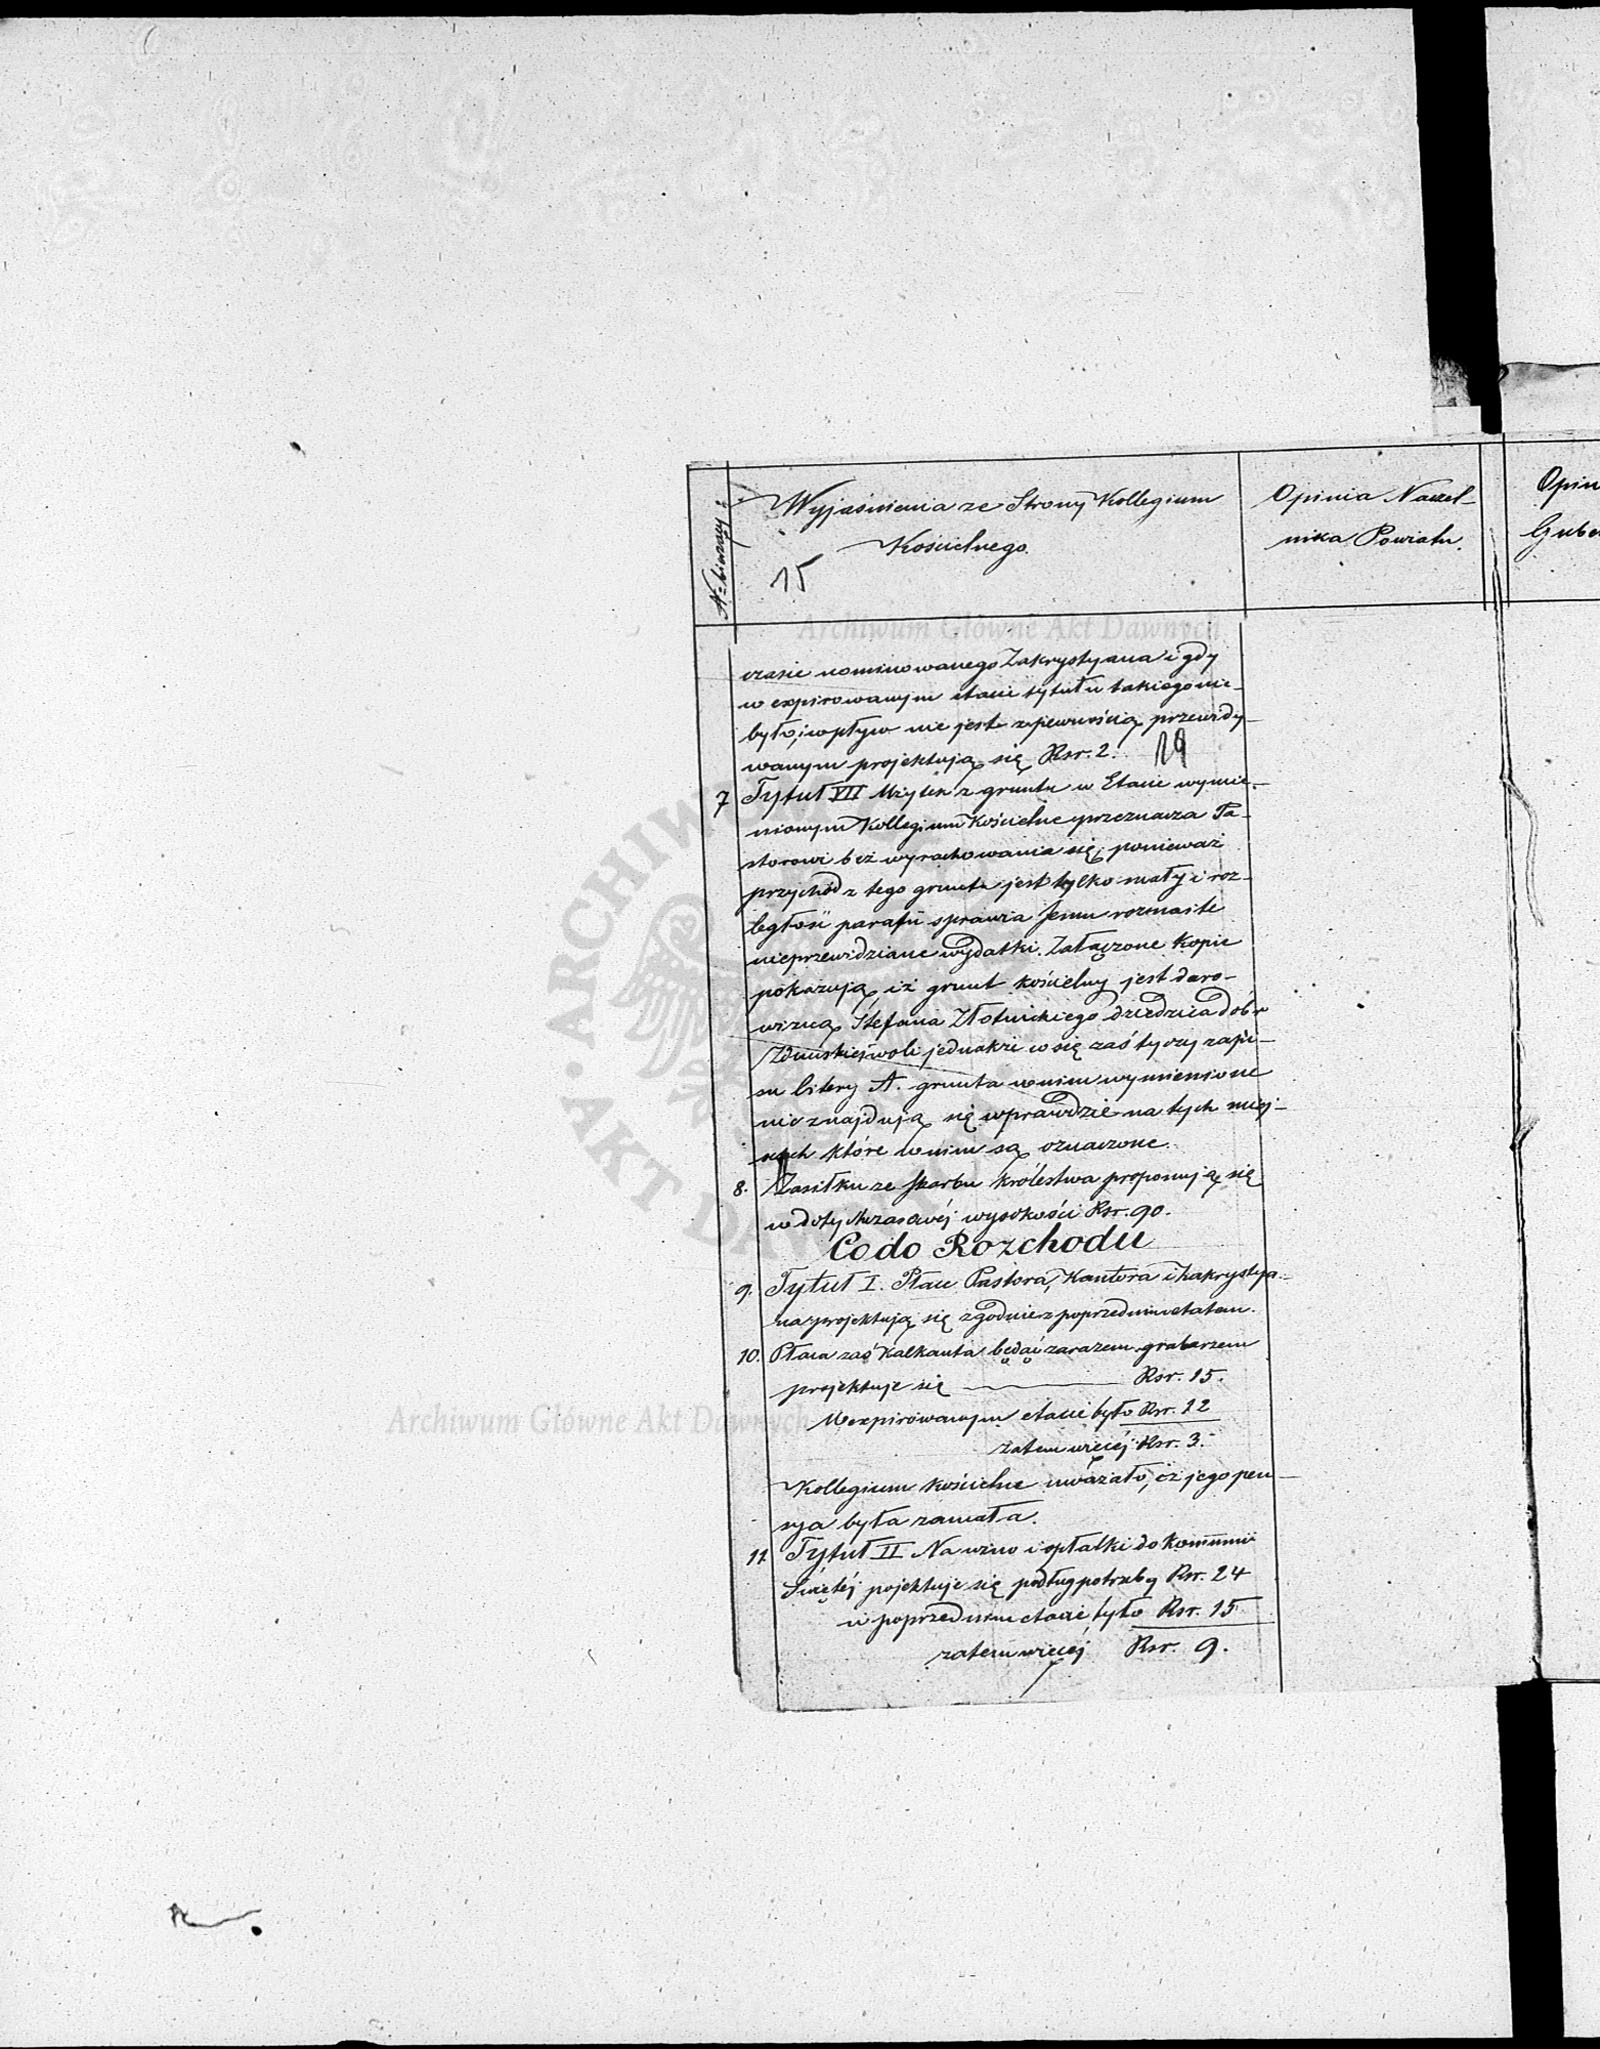 N= bieżący:
Wyjaśnienia ze Strony Kollegium
Kościelnego.
15
Opinia Naczel-
nika Powiatu.
Opin
Gube
Archiwum Główne Akt Dawnych
czasie nominowanego Zakrystyana i gdy
w expirowanym etacie tytułu takiego nie-
było, i wpływ nie jest z pewnością przewidy-
wanym projektują się Rsr. 2.
19
7 Tytuł VII Użytek z gruntu w Etacie wymie-
nionym Kollegium Kościelne przeznacza Pa-
storowi bez wyrachowania się, ponieważ
przychód z tego gruntu jest tylko mały i roz-
ległość parafii sprawia Jemu rozmaite
nieprzewidziane wydatki. Załączone Kopie
pokazują, iż grunt kościelny jest daro-
wizną Stefana Złotnickiego dziedzica dóbr
Zduńskiejwoli jednakże co się zaś tyczy zapi-
su litery A. grunta w nim wymienione
nie znajdują się wprawdzie na tych miej-
scach które w nim są oznaczone.
8. Zasiłku ze Skarbu Królestwa proponują się
w dotychczasowéj wysokości Rsr. 90.
Co do Rozchodu
9. Tytuł I. Płace Pastora, Kantora i Zakrystya-
na projektują się zgodnie z poprzednim etatem.
10. Płaca zaś Kalkanta będąć zarazem grabarzem
projektuje się Rsr. 15.
W expirowanym etacie było Rsr. 12
zatem więcéj Rsr. 3.
Kollegium kościelne uważało, iż jego pen-
sya była zamała.
11 Tytuł II Na wino i opłatki do Kommunii
Świętéj pojektuje się podług potrzeby Rsr. 24
w poprzednim etacie było Rsr. 15
zatem więcéj Rsr. 9.
ARCHIWUM
AKT DA
Archiwum Główne Akt Dawnych